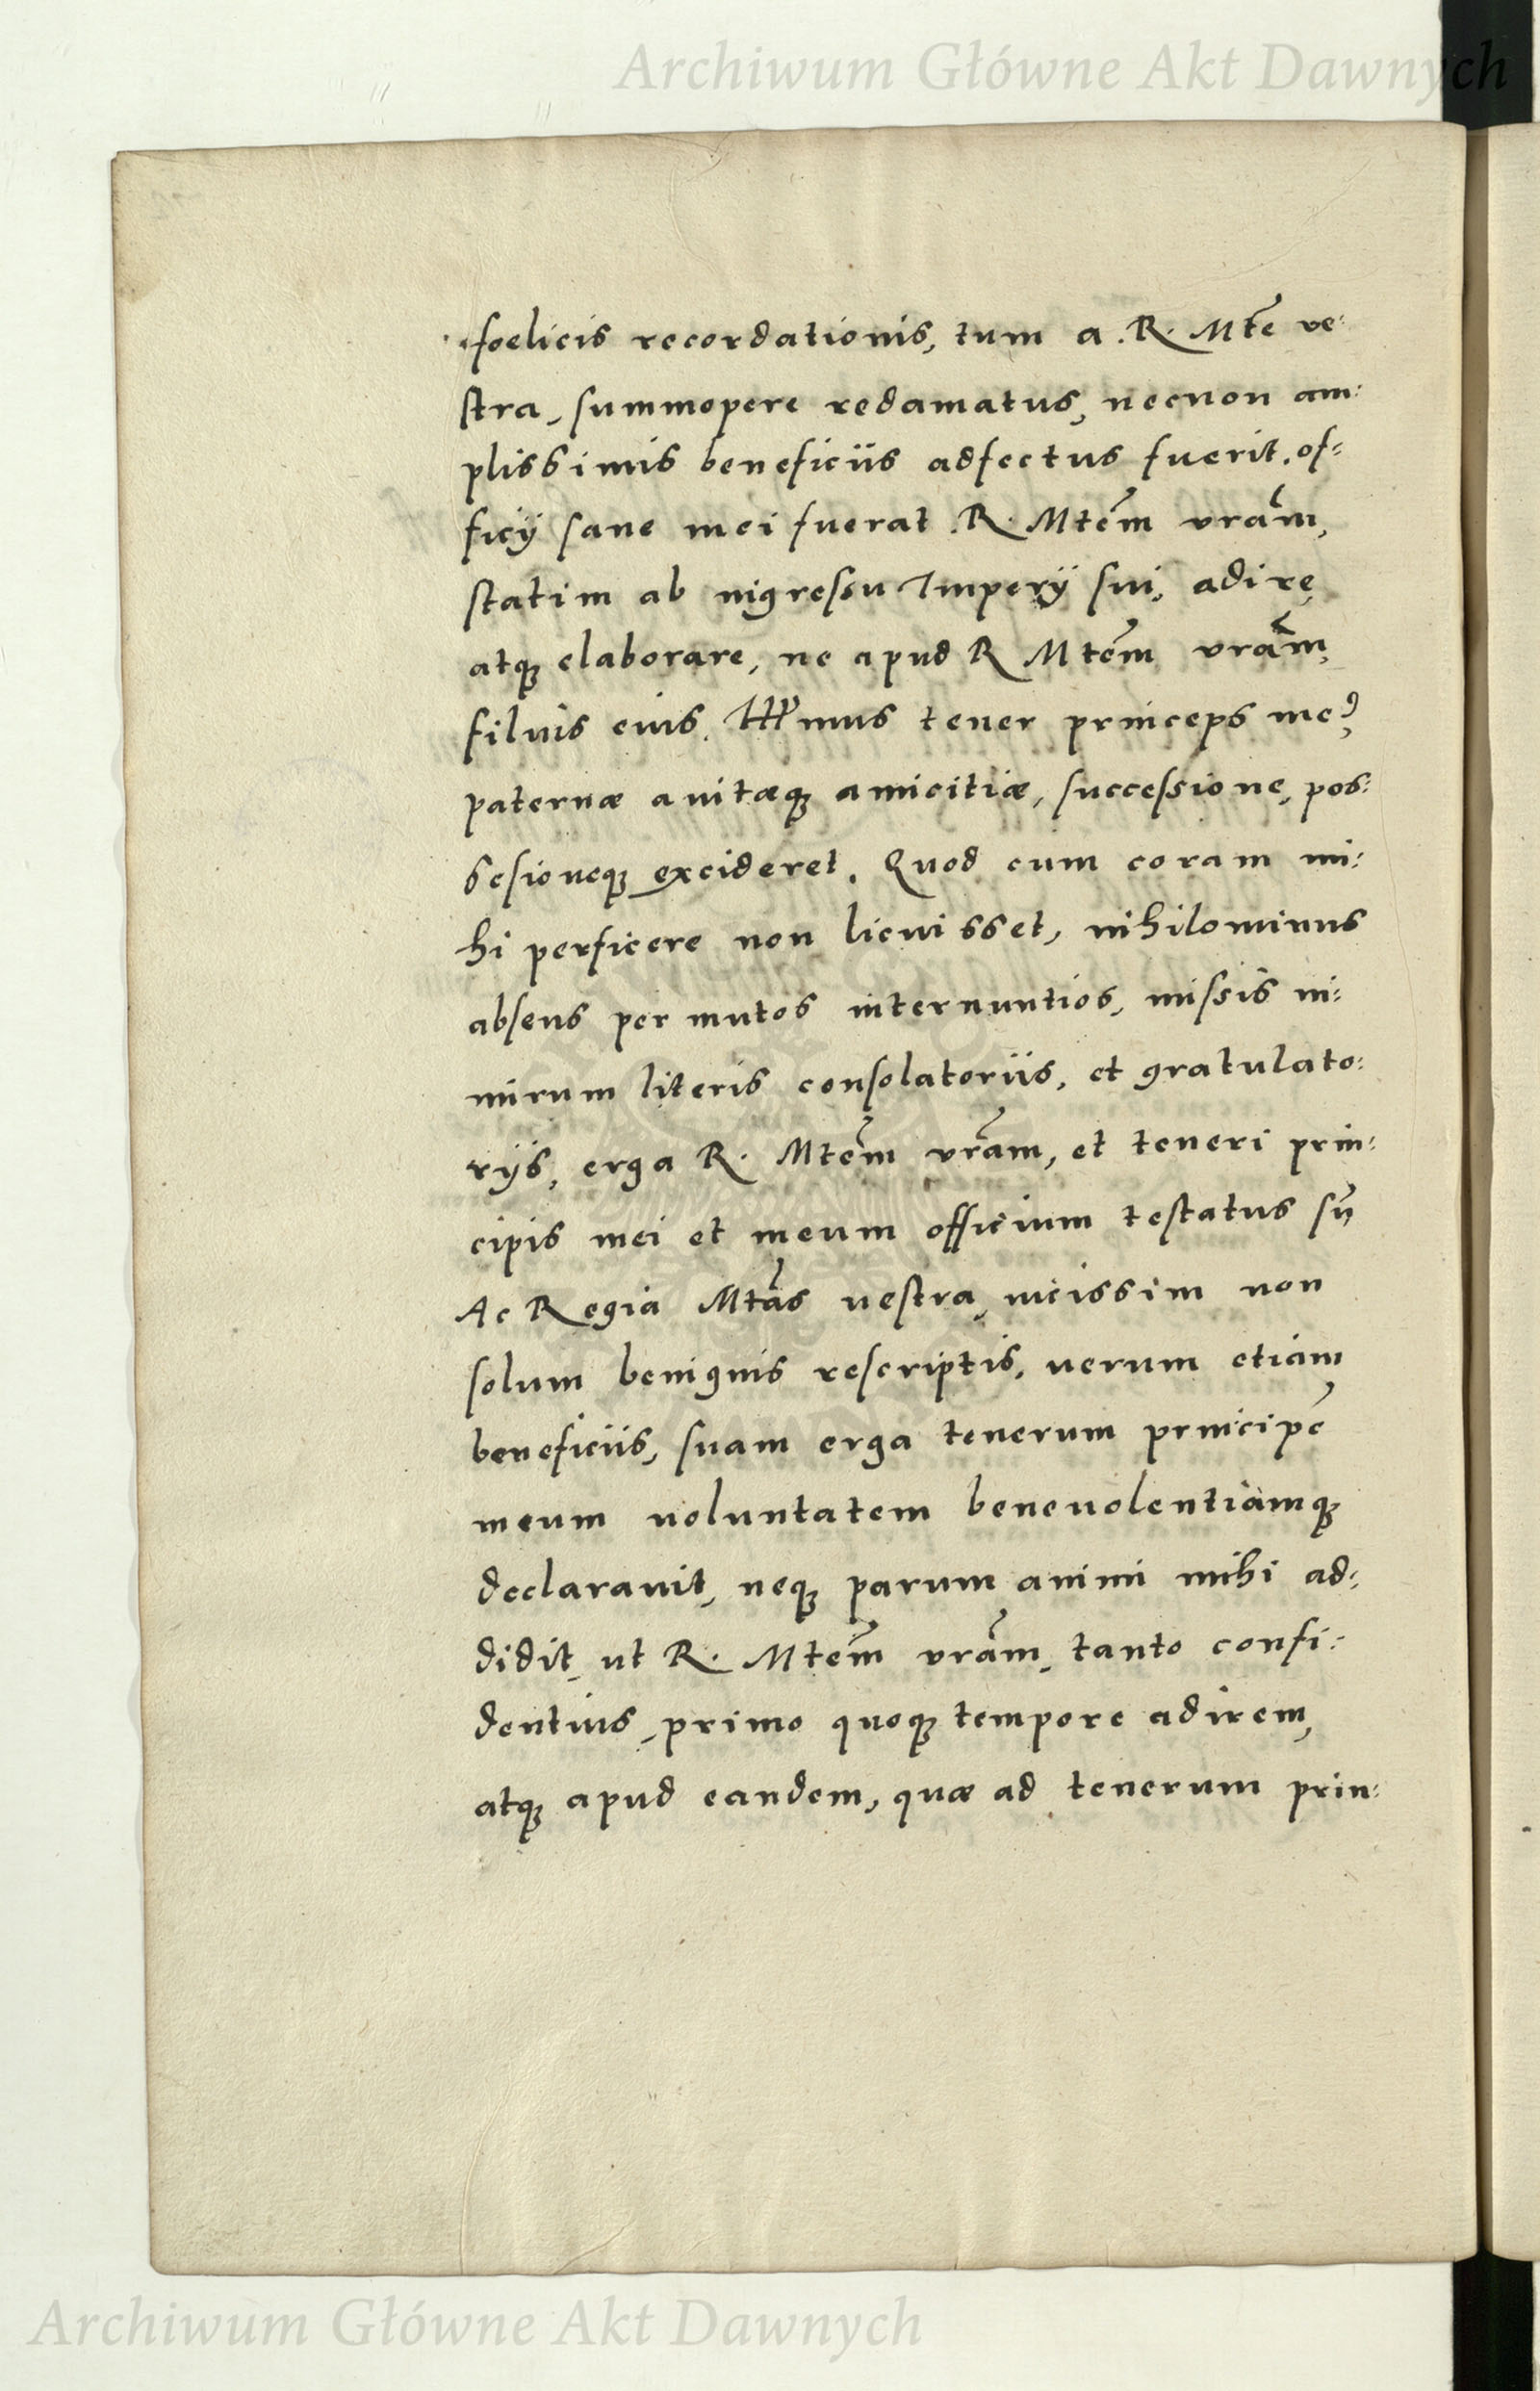 Archiwum Główne Akt Dawnych
foelicis recordationis, tum a .R. Mte ve:
stra, summopere redamatus, necnon am:
plissimis beneficiis adfectus fuerit. of:
ficij sane mei fuerat .R. Mtem vram,
statim ab ingressu Imperij sui, adire
atq; elaborare, ne apud R Mtem vram,
filius eius, Illmus tener princeps me9,
paternæ auitæq; amicitiæ, successione, pos:
sesioneq; excideret. Quod cum coram mi:
hi perficere non licuisset, nihilominus
absens per mutos internuntios, missis ni:
mirum literis consolatoriis, et gratulato:
rijs, erga R. Mtem vram, et teneri prin:
cipis mei et meum officium testatus sũ
Ac Regia Mtas uestra, uicissim non
solum benignis rescriptis, uerum etiam
beneficiis, suam erga tenerum principē
meum uoluntatem beneuolentiamq;
declarauit, neq; parum animi mihi ad:
didit, ut R. Mtem vram, tanto confi:
dentius, primo quoq; tempore adirem,
atq; apud eandem, quæ ad tenerum prin:
Archiwum Główne Akt Dawnych